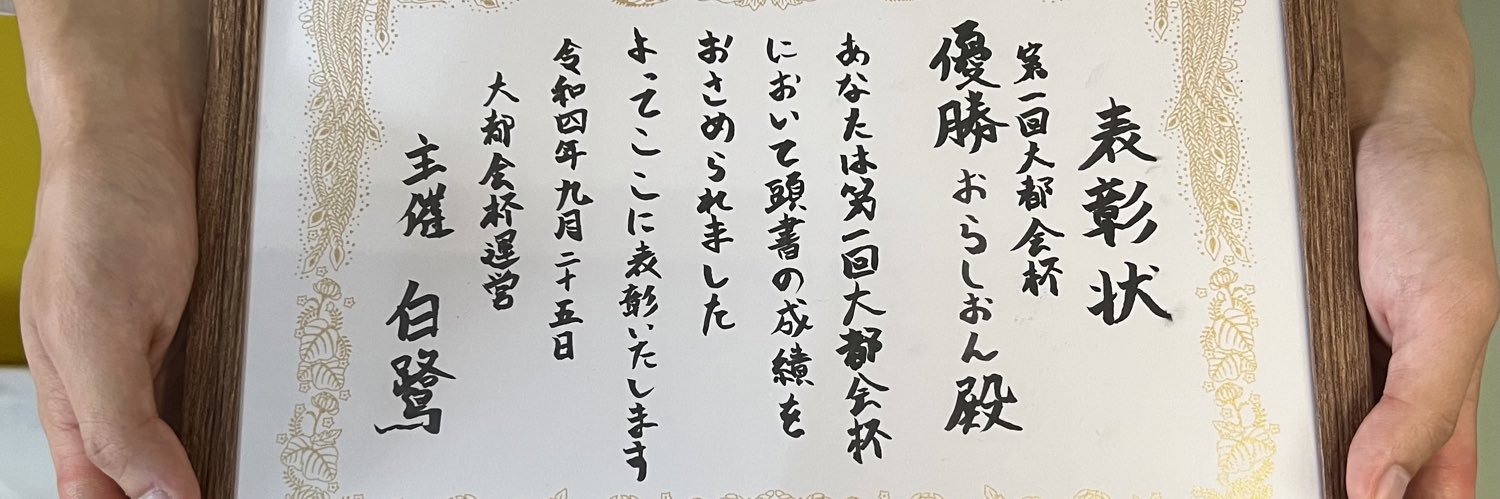 表彰状
第一回大都会杯
優勝 おらしおん殿
あなたは第一回大都会杯
において頭書の成績を
おさめられました
よってここに表彰いたします
令和四年九月二十五日
大都会杯運営
主催 白鷺